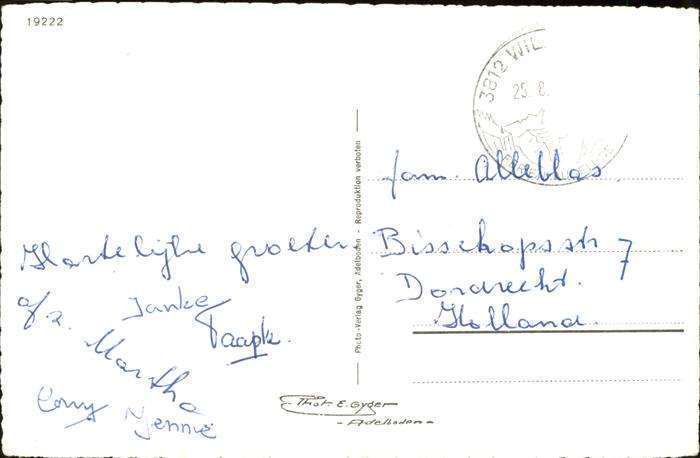 19222
3812 WIL
25. 8.
Hartelijke groeten
a/z. Janke
Martha
Corry Jennie
Photo-Verlag Gyger, Adelboden - Reproduktion verboten
fam. Alleblas.
Bisschopsstr 7
Dordrecht.
Holland.
Phot. E. Gyger
- Adelboden -